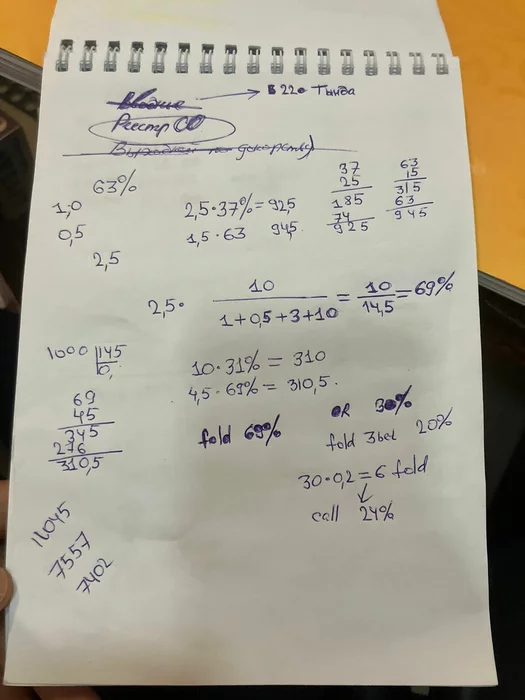 Вводные → В 220 Тында
Реестр СО
Выходной на декорсть)
63%
1,0
0,5
2,5
2,5·37%=925
1,5·63 945
37
25
185
74
925
63
15
315
63
945
2,5· 10/(1+0,5+3+10) = 10/14,5 = 69%
1000 145
0,
69
45
345
276
310,5
10·31% = 310
4,5·69% = 310,5.
fold 69%
OR 30%
fold 3bet 20%
30·0,2=6 fold
↓
call 24%
11045
7557
7402